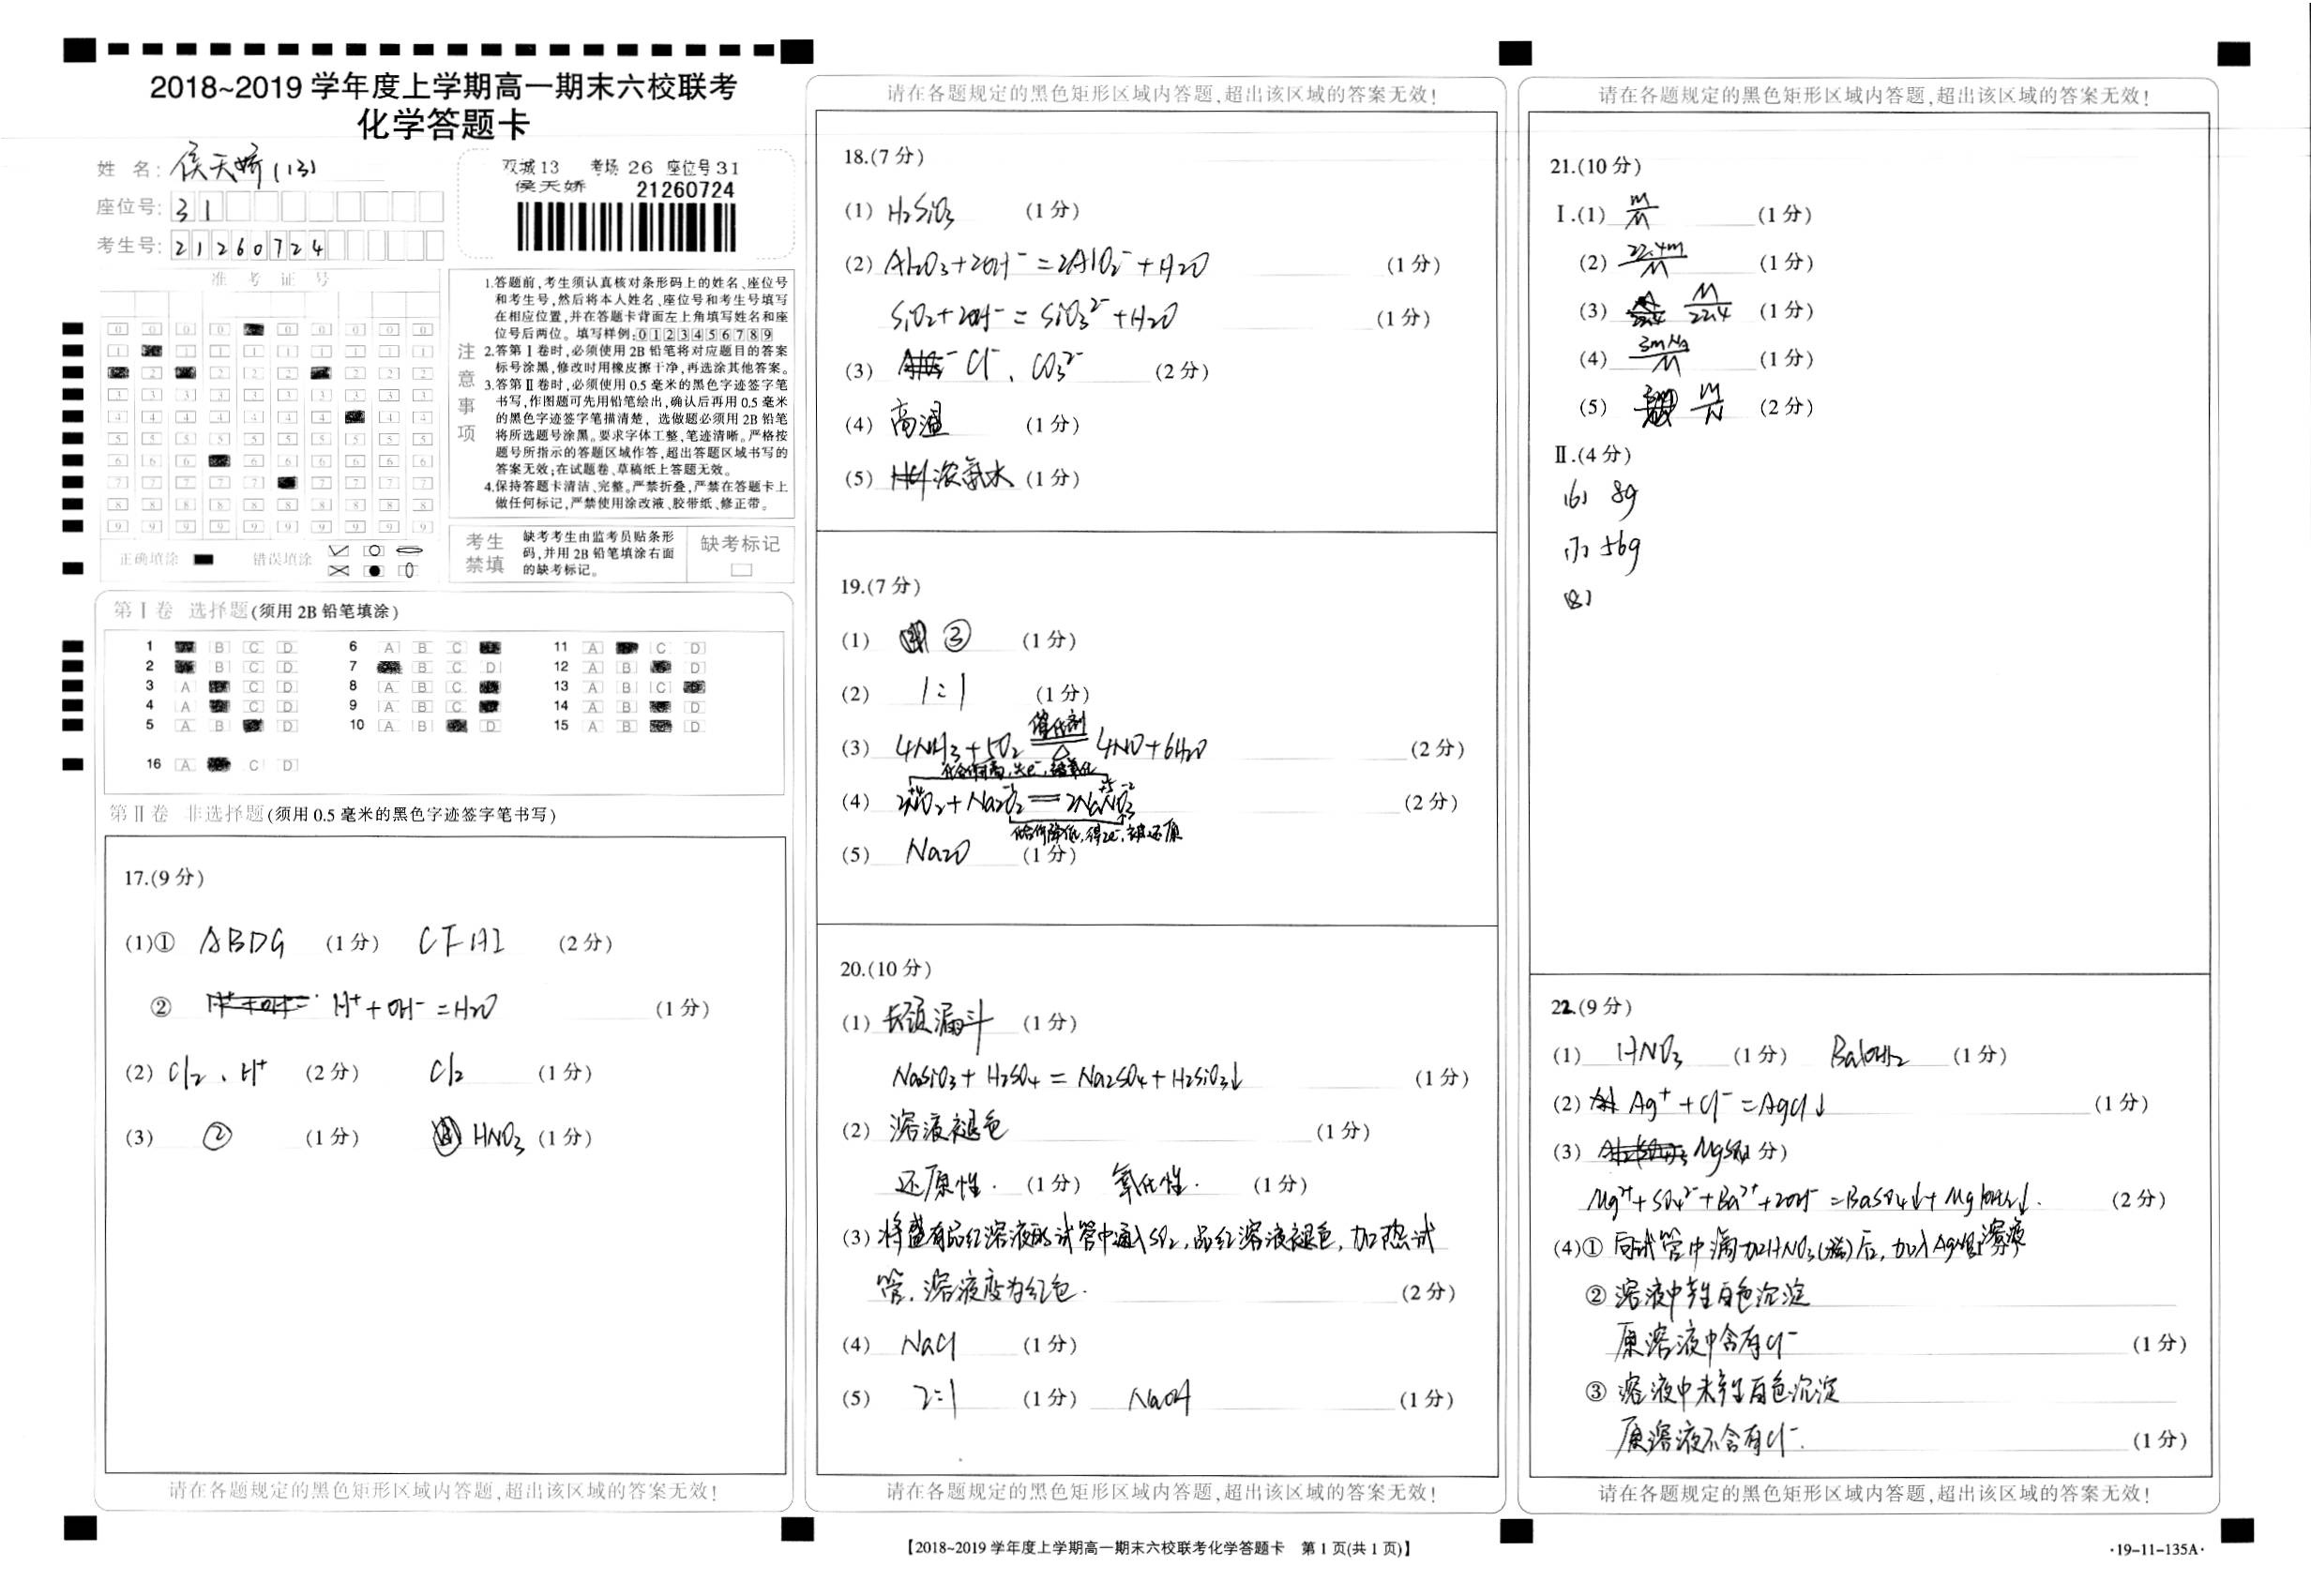 2018~2019 学年度上学期高一期末六校联考
化学答题卡
姓 名: 侯天娇(13)
座位号: 3 1
考生号: 2 1 2 6 0 7 2 4
双城13 考场 26 座位号31
侯天娇 21260724
准 考 证 号
注意事项
1.答题前,考生须认真核对条形码上的姓名、座位号
和考生号,然后将本人姓名、座位号和考生号填写
在相应位置,并在答题卡背面左上角填写姓名和座
位号后两位。填写样例:0123456789
2.答第Ⅰ卷时,必须使用2B铅笔将对应题目的答案
标号涂黑,修改时用橡皮擦干净,再选涂其他答案。
3.答第Ⅱ卷时,必须使用0.5毫米的黑色字迹签字笔
书写,作图题可先用铅笔绘出,确认后再用0.5毫米
的黑色字迹签字笔描清楚,选做题必须用2B铅笔
将所选题号涂黑。要求字体工整、笔迹清晰。严格按
题号所指示的答题区域作答,超出答题区域书写的
答案无效;在试题卷、草稿纸上答题无效。
4.保持答题卡清洁、完整。严禁折叠,严禁在答题卡上
做任何标记,严禁使用涂改液、胶带纸、修正带。
正确填涂 错误填涂
考生禁填
缺考考生由监考员贴条形
码,并用2B铅笔填涂右面
的缺考标记。
缺考标记
第Ⅰ卷 选择题(须用2B铅笔填涂)
1 B C D 6 A B C 11 A C D
2 B C D 7 B C D 12 A B D
3 A C D 8 A B C 13 A B C
4 A C D 9 A B C 14 A B D
5 A B D 10 A B D 15 A B D
16 A C D
第Ⅱ卷 非选择题(须用0.5毫米的黑色字迹签字笔书写)
17.(9分)
(1)① ABDG (1分) CFHI (2分)
② H⁺+OH⁻=H₂O (1分)
(2) Cl₂、H⁺ (2分) Cl₂ (1分)
(3) ② (1分) HNO₃ (1分)
请在各题规定的黑色矩形区域内答题,超出该区域的答案无效!
请在各题规定的黑色矩形区域内答题,超出该区域的答案无效!
18.(7分)
(1) H₂SiO₃ (1分)
(2) Al₂O₃+2OH⁻=2AlO₂⁻+H₂O (1分)
SiO₂+2OH⁻=SiO₃²⁻+H₂O (1分)
(3) Cl⁻、CO₃²⁻ (2分)
(4) 高温 (1分)
(5) 浓氨水 (1分)
19.(7分)
(1) ③ (1分)
(2) 1:1 (1分)
催化剂
(3) 4NH₃+5O₂ ══ 4NO+6H₂O (2分)
△
(4) 2NO₂+Na₂O₂══2NaNO₃ (2分)
化合价降低,得2e⁻,被还原
(5) Na₂O (1分)
20.(10分)
(1) 长颈漏斗 (1分)
NaSiO₃+H₂SO₄=Na₂SO₄+H₂SiO₃↓ (1分)
(2) 溶液褪色 (1分)
还原性. (1分) 氧化性. (1分)
(3) 将盛有品红溶液的试管中通入SO₂,品红溶液褪色,加热试
管,溶液变为红色. (2分)
(4) NaCl (1分)
(5) 2:1 (1分) NaOH (1分)
请在各题规定的黑色矩形区域内答题,超出该区域的答案无效!
请在各题规定的黑色矩形区域内答题,超出该区域的答案无效!
21.(10分)
Ⅰ.(1) m/M (1分)
(2) 22.4m/M (1分)
(3) M/22.4 (1分)
(4) 3mNa/M (1分)
(5) M/N (2分)
Ⅱ.(4分)
(6) 8g
(7) 56g
(8)
22.(9分)
(1) HNO₃ (1分) Ba(OH)₂ (1分)
(2) Ag⁺+Cl⁻=AgCl↓ (1分)
(3) MgSO₄ (1分)
Mg²⁺+SO₄²⁻+Ba²⁺+2OH⁻=BaSO₄↓+Mg(OH)₂↓. (2分)
(4)① 向试管中滴加HNO₃(稀)后,加入AgNO₃溶液
② 溶液中产生白色沉淀
原溶液中含有Cl⁻ (1分)
③ 溶液中未产生白色沉淀
原溶液不含有Cl⁻. (1分)
请在各题规定的黑色矩形区域内答题,超出该区域的答案无效!
【2018~2019 学年度上学期高一期末六校联考化学答题卡 第1页(共1页)】
·19-11-135A·